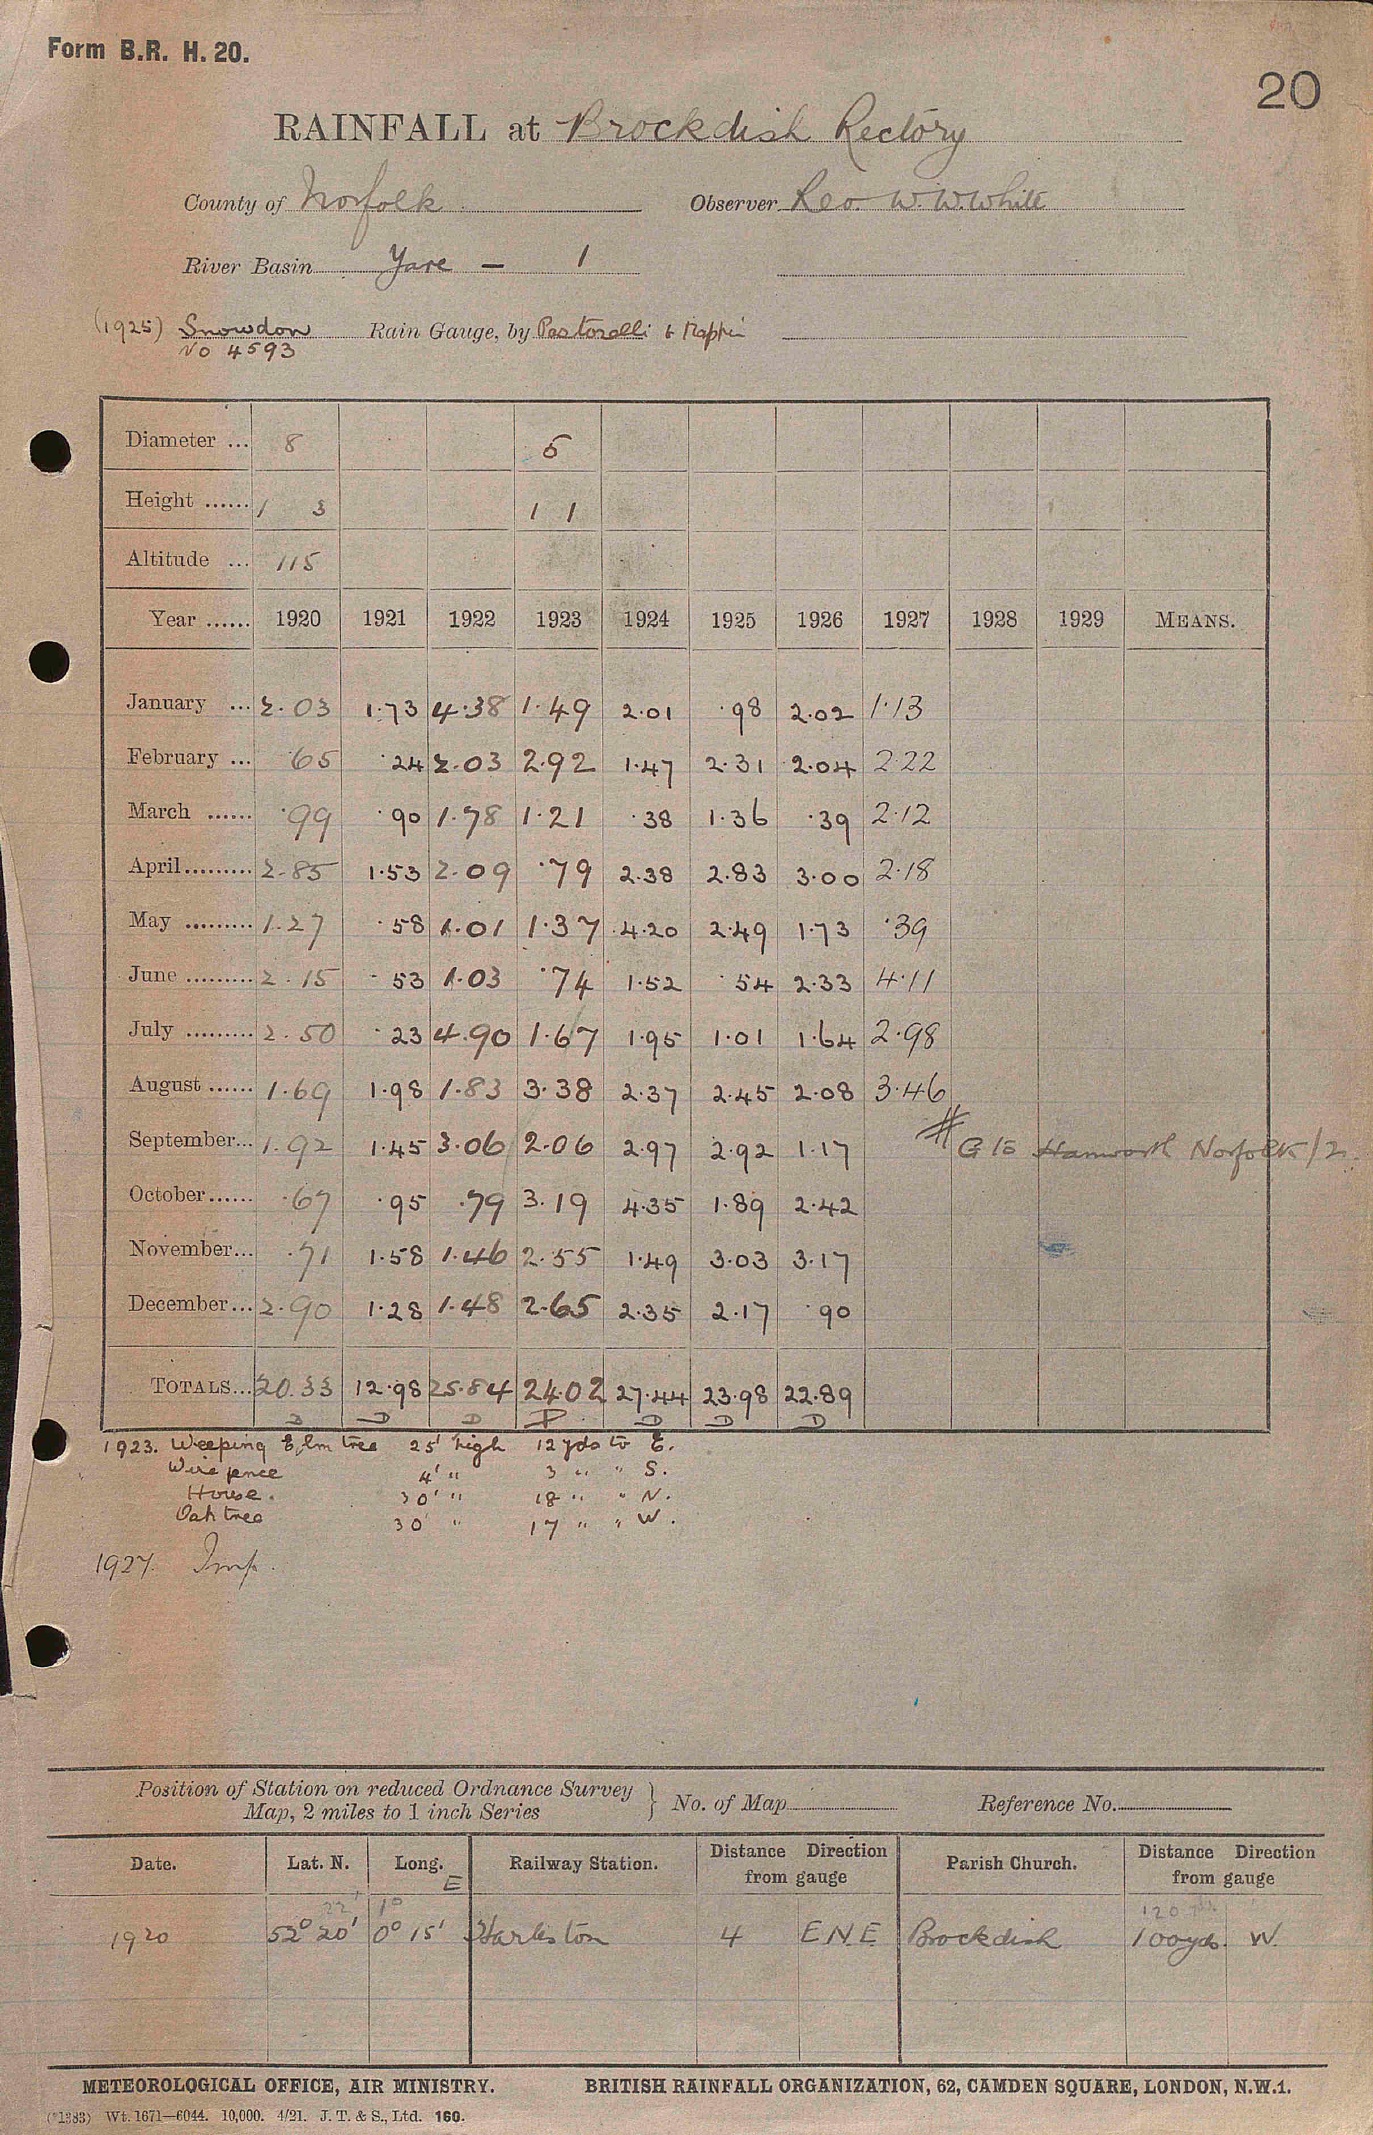 Form B.R. H. 20.
20
RAINFALL at Brockdish Rectory
County of Norfolk Observer Rev. W. W. White
River Basin Yare — 1
(1925) Snowdon Rain Gauge, by Pastorelli &
No 4593
Diameter ... 8 5
Height ...... 1 3 1 1
Altitude ... 115
Year ...... 1920 1921 1922 1923 1924 1925 1926 1927 1928 1929 MEANS.
January ... 2.03 1.73 4.38 1.49 2.01 .98 2.02 1.13
February ... .65 .24 2.03 2.92 1.47 2.31 2.04 2.22
March ...... .99 .90 1.78 1.21 .38 1.36 .39 2.12
April ......... 2.85 1.53 2.09 .79 2.38 2.83 3.00 2.18
May ......... 1.27 .58 1.01 1.37 4.20 2.49 1.73 .39
June ......... 2.15 .53 1.03 .74 1.52 .54 2.33 4.11
July ......... 2.50 .23 4.90 1.67 1.95 1.01 1.64 2.98
August ...... 1.69 1.98 1.83 3.38 2.37 2.45 2.08 3.46
September... 1.92 1.45 3.06 2.06 2.97 2.92 1.17 # G to Hanworth Norfolk /2.
October ...... .67 .95 .79 3.19 4.35 1.89 2.42
November... .71 1.58 1.46 2.55 1.49 3.03 3.17
December ... 2.90 1.28 1.48 2.65 2.35 2.17 .90
TOTALS... 20.33 12.98 25.84 24.02 27.44 23.98 22.89
D D D D D D
1923. Weeping Elm tree 25' high 12 yds to E.
Wire fence 4' " 3 " " S.
House. 30' " 18 " " N.
Oak tree 30' " 17 " " W.
1927. Imp.
Position of Station on reduced Ordnance Survey
Map, 2 miles to 1 inch Series } No. of Map Reference No.
Date. Lat. N. Long. E Railway Station. Distance Direction from gauge Parish Church. Distance Direction from gauge
22' 1° 120 yds
1920 52° 20' 0° 15' Harleston 4 E.N.E. Brockdish 100yds. W.
METEOROLOGICAL OFFICE, AIR MINISTRY. BRITISH RAINFALL ORGANIZATION, 62, CAMDEN SQUARE, LONDON, N.W.1.
(*1383) Wt. 1671—6044. 10,000. 4/21. J. T. & S., Ltd. 160.